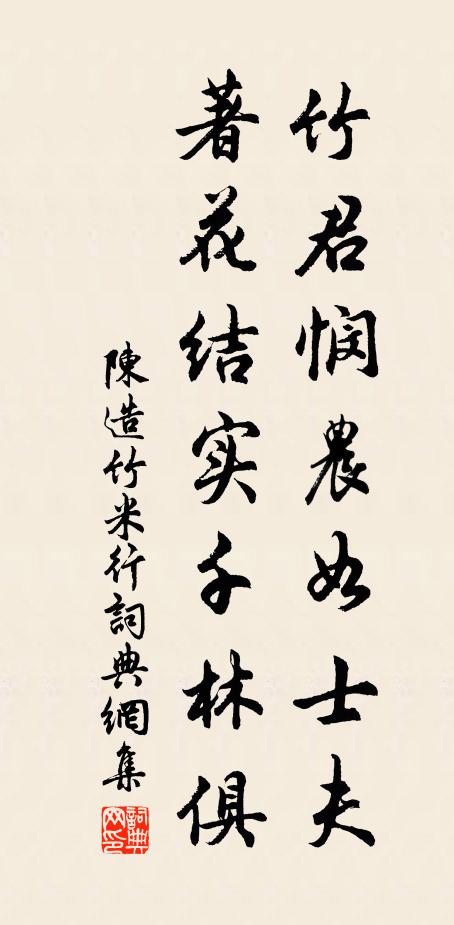 竹君悯農如士夫
著花结实千林俱
陳造竹米行詞典網集
詞典網印